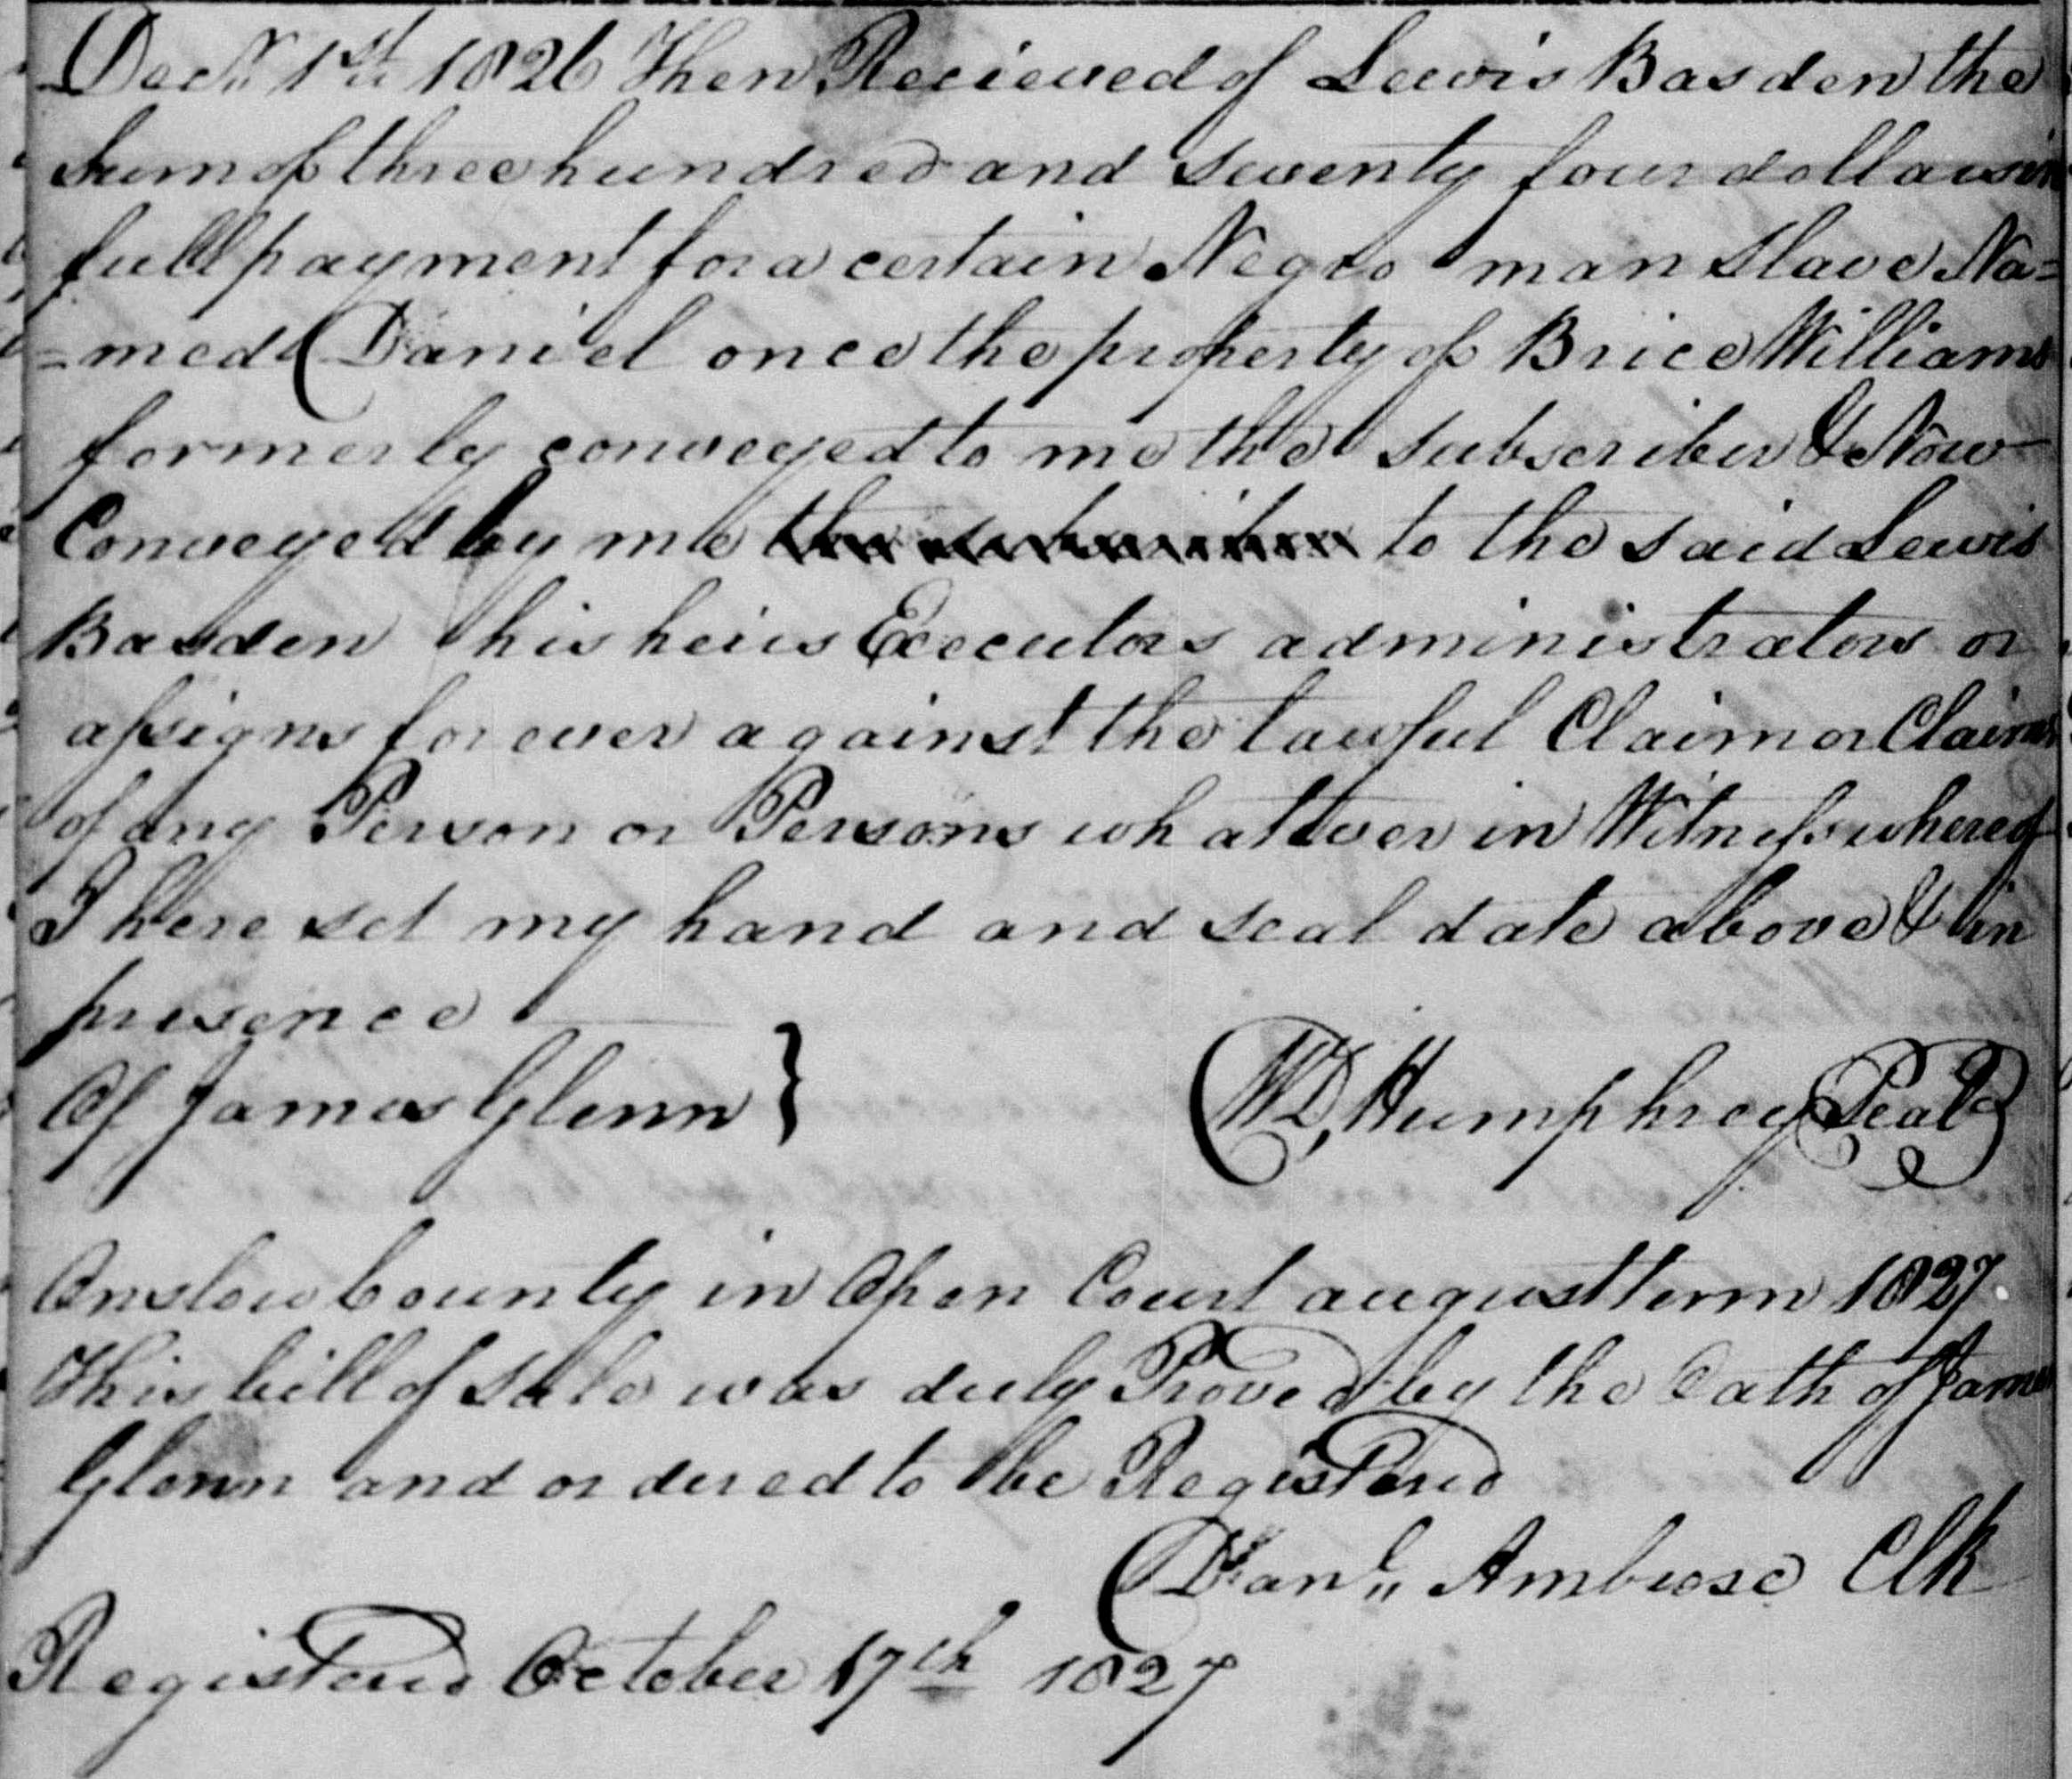 Decr. 1st 1826 Then Recieved of Lewis Basden the
Sum of three hundred and seventy four dollars in
full payment for a certain Negro man Slave Na=
=med Daniel once the property of Brice Williams
formerly conveyed to me the subscriber & Now
Conveyed by me the subscriber to the said Lewis
Basden his heirs Executors administrators or
assigns for ever against the lawful Claim or Claims
of any Person or Persons whatever in Witness whereof
I here set my hand and seal date above & in
presence
Of James Glenn } WD, Humphrey Seal
Onslow County in Open Court august term 1827
This bill of Sale was duly Proved by the Oath of James
Glenn and ordered to be Registered
Danl. Ambrose Clk
Registered October 17th 1827